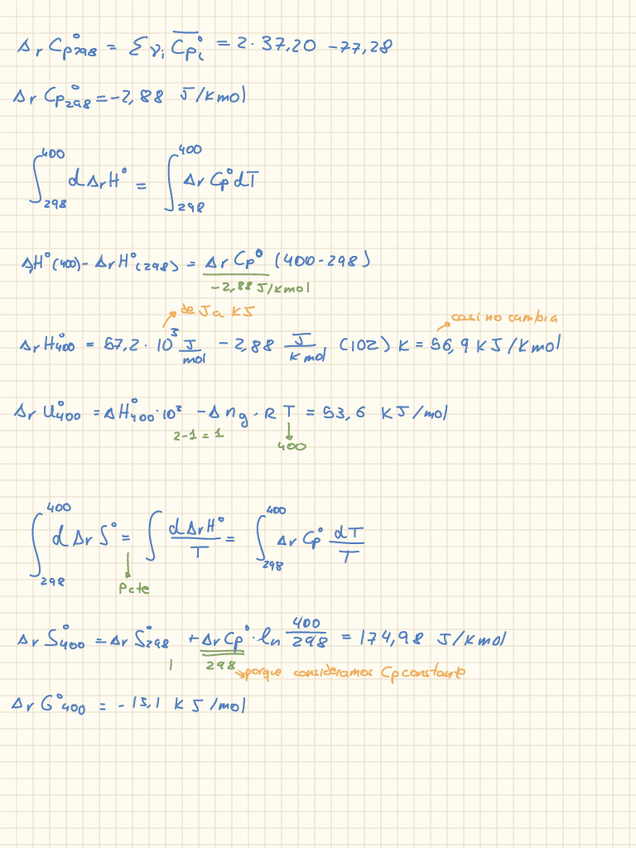 Δr Cp°298 = Σ γi C̅p°i = 2·37,20 - 77,28
Δr Cp°298 = -2,88 J/Kmol
∫₂₉₈⁴⁰⁰ dΔrH° = ∫₂₉₈⁴⁰⁰ Δr Cp° dT
ΔrH°(400) - ΔrH°(298) = Δr Cp° (400-298)
-2,88 J/Kmol
de J a KJ
casi no cambia
ΔrH°400 = 57,2·10³ J/mol - 2,88 J/K mol (102) K = 56,9 KJ/Kmol
Δr U°400 = ΔH°400·10³ - Δng·R T = 53,6 KJ/mol
2-1 = 1
400
∫₂₉₈⁴⁰⁰ dΔr S° = ∫ dΔrH°/T = ∫₂₉₈⁴⁰⁰ Δr Cp° dT/T
Pcte
Δr S°400 = Δr S°298 + Δr Cp° · ln 400/298 = 174,98 J/Kmol
298
porque consideramos Cp constante
Δr G°400 = -13,1 KJ/mol